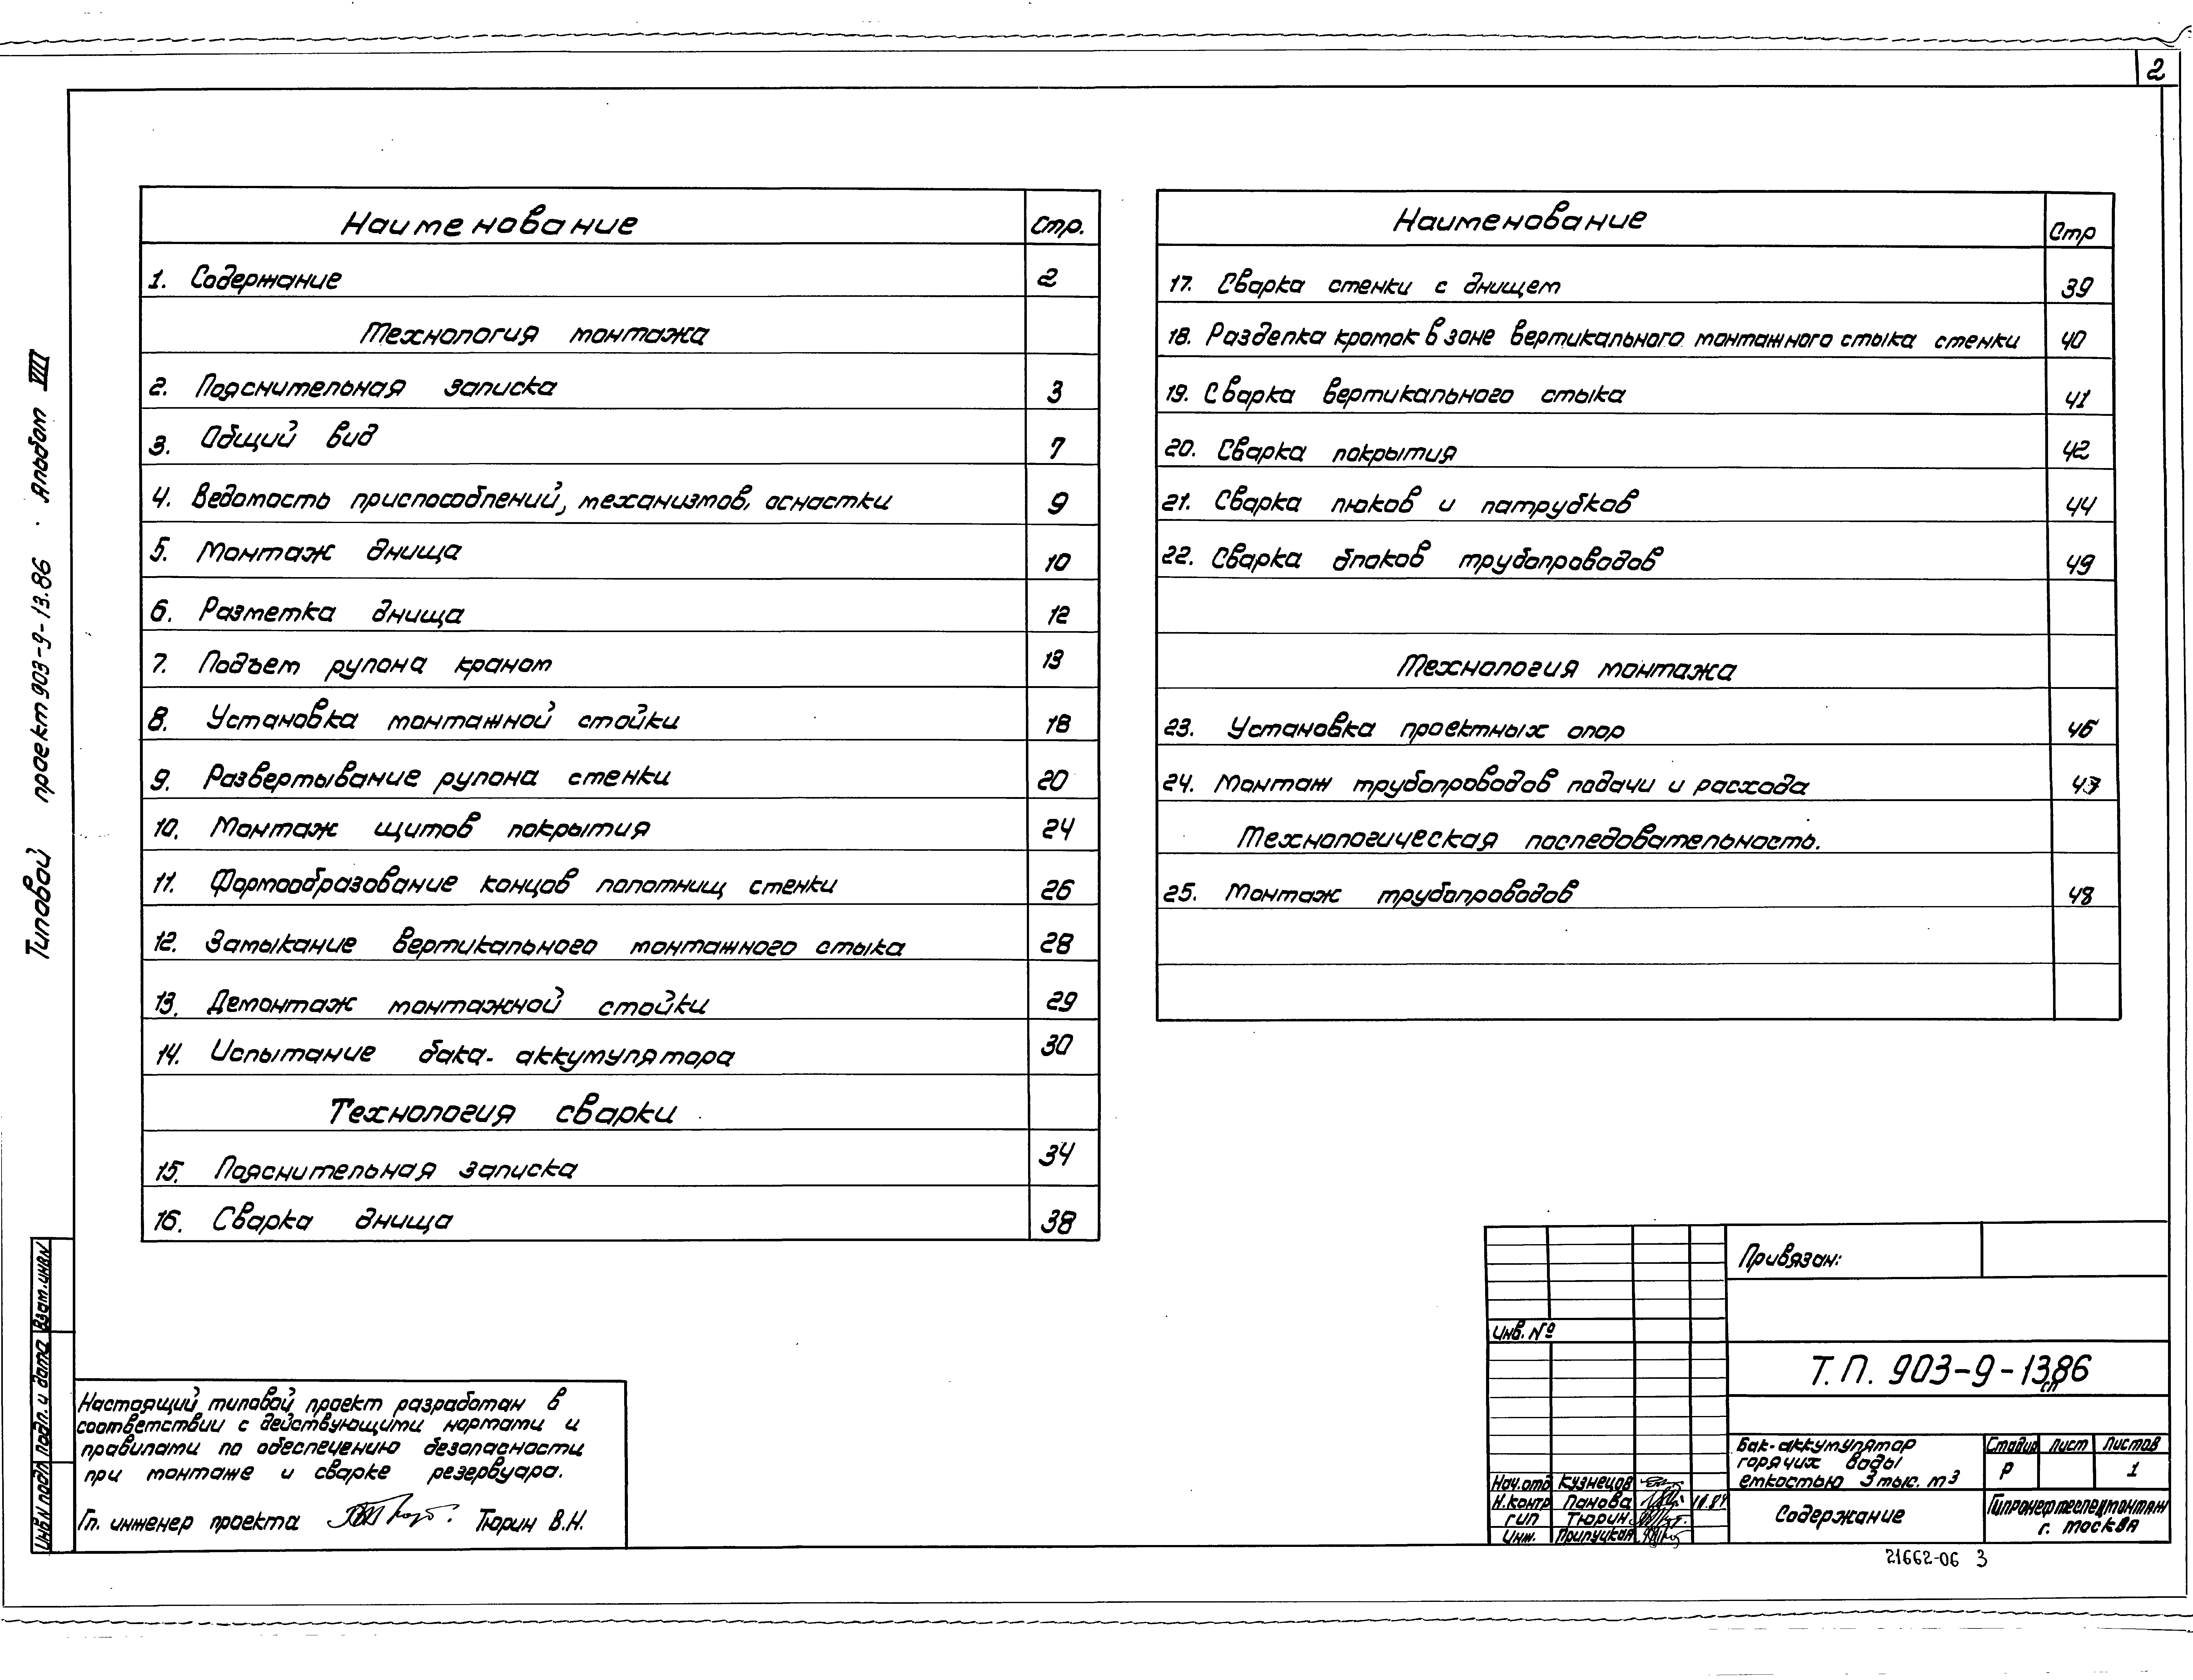 2
Типовой проект 903-9-13.86 Альбом VIII
Наименование Стр.
1. Содержание 2
Технология монтажа
2. Пояснительная записка 3
3. Общий вид 7
4. Ведомость приспособлений, механизмов, оснастки 9
5. Монтаж днища 10
6. Разметка днища 12
7. Подъем рулона краном 13
8. Установка монтажной стойки 18
9. Развертывание рулона стенки 20
10. Монтаж щитов покрытия 24
11. Формообразование концов полотнищ стенки 26
12. Замыкание вертикального монтажного стыка 28
13. Демонтаж монтажной стойки 29
14. Испытание бака-аккумулятора 30
Технология сварки
15. Пояснительная записка 34
16. Сварка днища 38
Наименование Стр
17. Сварка стенки с днищем 39
18. Разделка кромок в зоне вертикального монтажного стыка стенки 40
19. Сварка вертикального стыка 41
20. Сварка покрытия 42
21. Сварка люков и патрубков 44
22. Сварка блоков трубопроводов 49
Технология монтажа
23. Установка проектных опор 46
24. Монтаж трубопроводов подачи и расхода 47
Технологическая последовательность.
25. Монтаж трубопроводов 48
Инв.N подл Подп. и дата Взам.инвN
Настоящий типовой проект разработан в
соответствии с действующими нормами и
правилами по обеспечению безопасности
при монтаже и сварке резервуара.
Гл. инженер проекта Тюрин В.Н.
Привязан:
Инв. №
Т.П. 903-9-13.86
сп
Бак-аккумулятор
горячих воды
емкостью 3 тыс. м3
Стадия Лист Листов
Р 1
Нач.отд Кузнецов
Н.контр Панова 10.84
ГИП Тюрин
Инж. Прилуцкая
Содержание
Гипронефтеспецмонтаж
г. Москва
21662-06 3